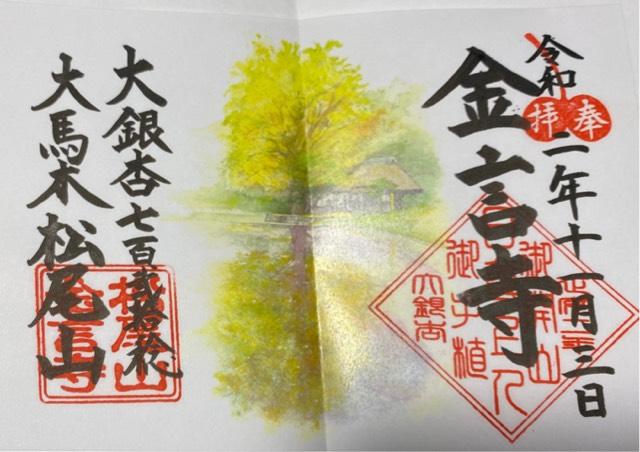 令和二年十一月三日
奉拝
金言寺
御開山
御手植
大銀杏
大銀杏七百弐拾
大馬木松尾山
松尾山
金言寺